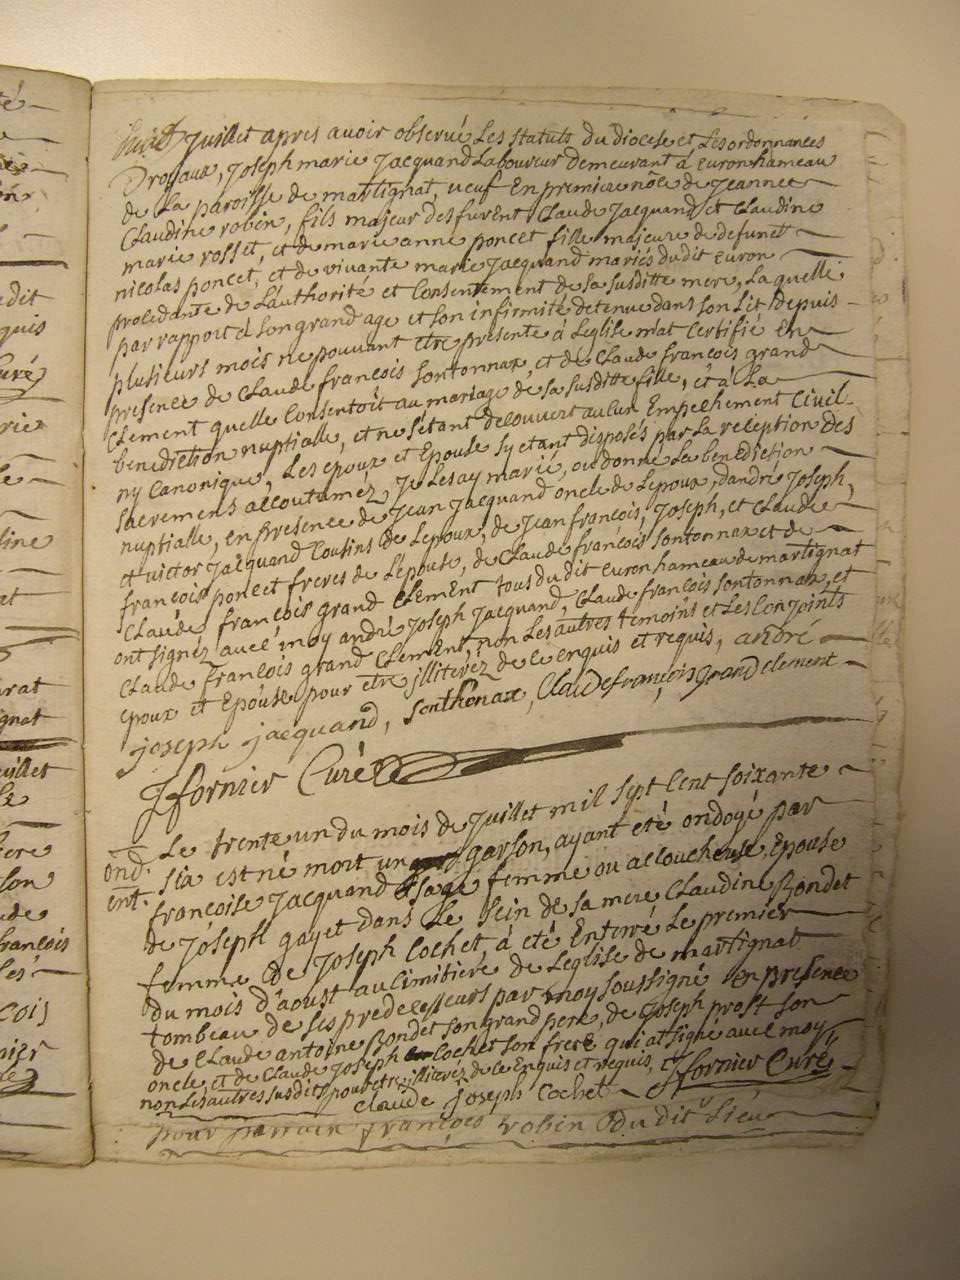 juillet apres avoir observé Les statuts du diocese et Les ordonnances
Royaux, Joseph marie Jacquand Laboureur demeurant à Euron hameau
de La paroisse de martignat, veuf En premiere nôce de Jeanne
Claudine robin, fils majeur des furent Claude Jacquand et Claudine
marie rosset, et de marie anne poncet fille majeure de defunct
nicolas poncet, et de vivante marie Jacquand mariés du dit euron
procedante de L'authorité et Consentement de sa susditte mere, La quelle
par rapport à son grand age et son infirmité detenue dans son Lit depuis
plusieurs mois ne pouvant etre presente à L'eglise m'at Certifié En
presence de Claude françois sontonnax, et de Claude françois grand
Clement quelle Consentoit au mariage de sa susditte fille, et à La
benediction nuptialle, et ne s'étant decouvert aucun Empechement Civil
ny Canonique, Les epoux et Epouse sy etant disposés par La reception des
sacremens accoutuméz, Je Les ay marié, ou donné La benediction
nuptialle, en presence de Jean Jacquand oncle de L'epoux, d'andré Joseph,
et victor Jacquand Cousins de L'epoux, de Jean françois, Joseph, et Claude
françois poncet freres de L'epouse, de Claude françois sontonnax et de
Claude françois grand Clement tous du dit euron hameau de martignat
ont signéz avec moy andré Joseph Jacquand, Claude françois sontonnax, et
Claude françois grand Clement, non Les autres temoins et Les Conjoints
epoux et Epouse pour etre illiteréz de ce enquis et requis, andré
joseph jacquand, sonthonax, Claude françois grand clement
fornier Curé
Le trente un du mois de Juillet mil sept Cent soixante
ond. six est né mort un garson, ayant eté ondoyé par
ent. françoise Jacquand sage femme ou accoucheuse Epouse
de Joseph gayet dans Le sein de sa mere Claudine Bondet
femme de Joseph Cochet, à eté Enterré Le premier
du mois d'aoust au Cimitiere de L'eglise de martignat
tombeau de ses predecesseurs par moy soussigné en presence
de Claude antoine Bondet son grand pere, de Joseph prost son
oncle, et de Claude Joseph Cochet son frere qui at signé avec moy
non Les autres susdits pour etre illiteréz de ce Enquis et requis, et fornier Curé
Claude joseph Cochet
pour parrain françois robin du dit Lieu